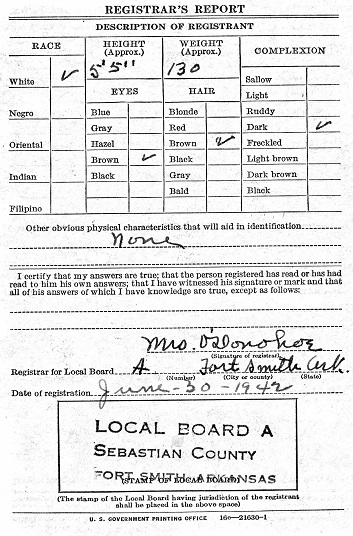 REGISTRAR'S REPORT
DESCRIPTION OF REGISTRANT
RACE
HEIGHT (Approx.)
WEIGHT (Approx.)
COMPLEXION
5'5"
130
White ✓
Sallow
Light
EYES
HAIR
Negro
Blue
Blonde
Ruddy
Gray
Red
Dark ✓
Oriental
Hazel
Brown ✓
Freckled
Brown ✓
Black
Light brown
Indian
Black
Gray
Dark brown
Bald
Black
Filipino
Other obvious physical characteristics that will aid in identification
None
I certify that my answers are true; that the person registered has read or has had
read to him his own answers; that I have witnessed his signature or mark and that
all of his answers of which I have knowledge are true, except as follows:
Mrs. O'Donohoe
(Signature of registrar)
Registrar for Local Board A Fort Smith Ark.
(Number) (City or county) (State)
Date of registration June-30-1942
LOCAL BOARD A
SEBASTIAN COUNTY
FORT SMITH, ARKANSAS
(STAMP OF LOCAL BOARD)
(The stamp of the Local Board having jurisdiction of the registrant
shall be placed in the above space)
U. S. GOVERNMENT PRINTING OFFICE 16—21630-1